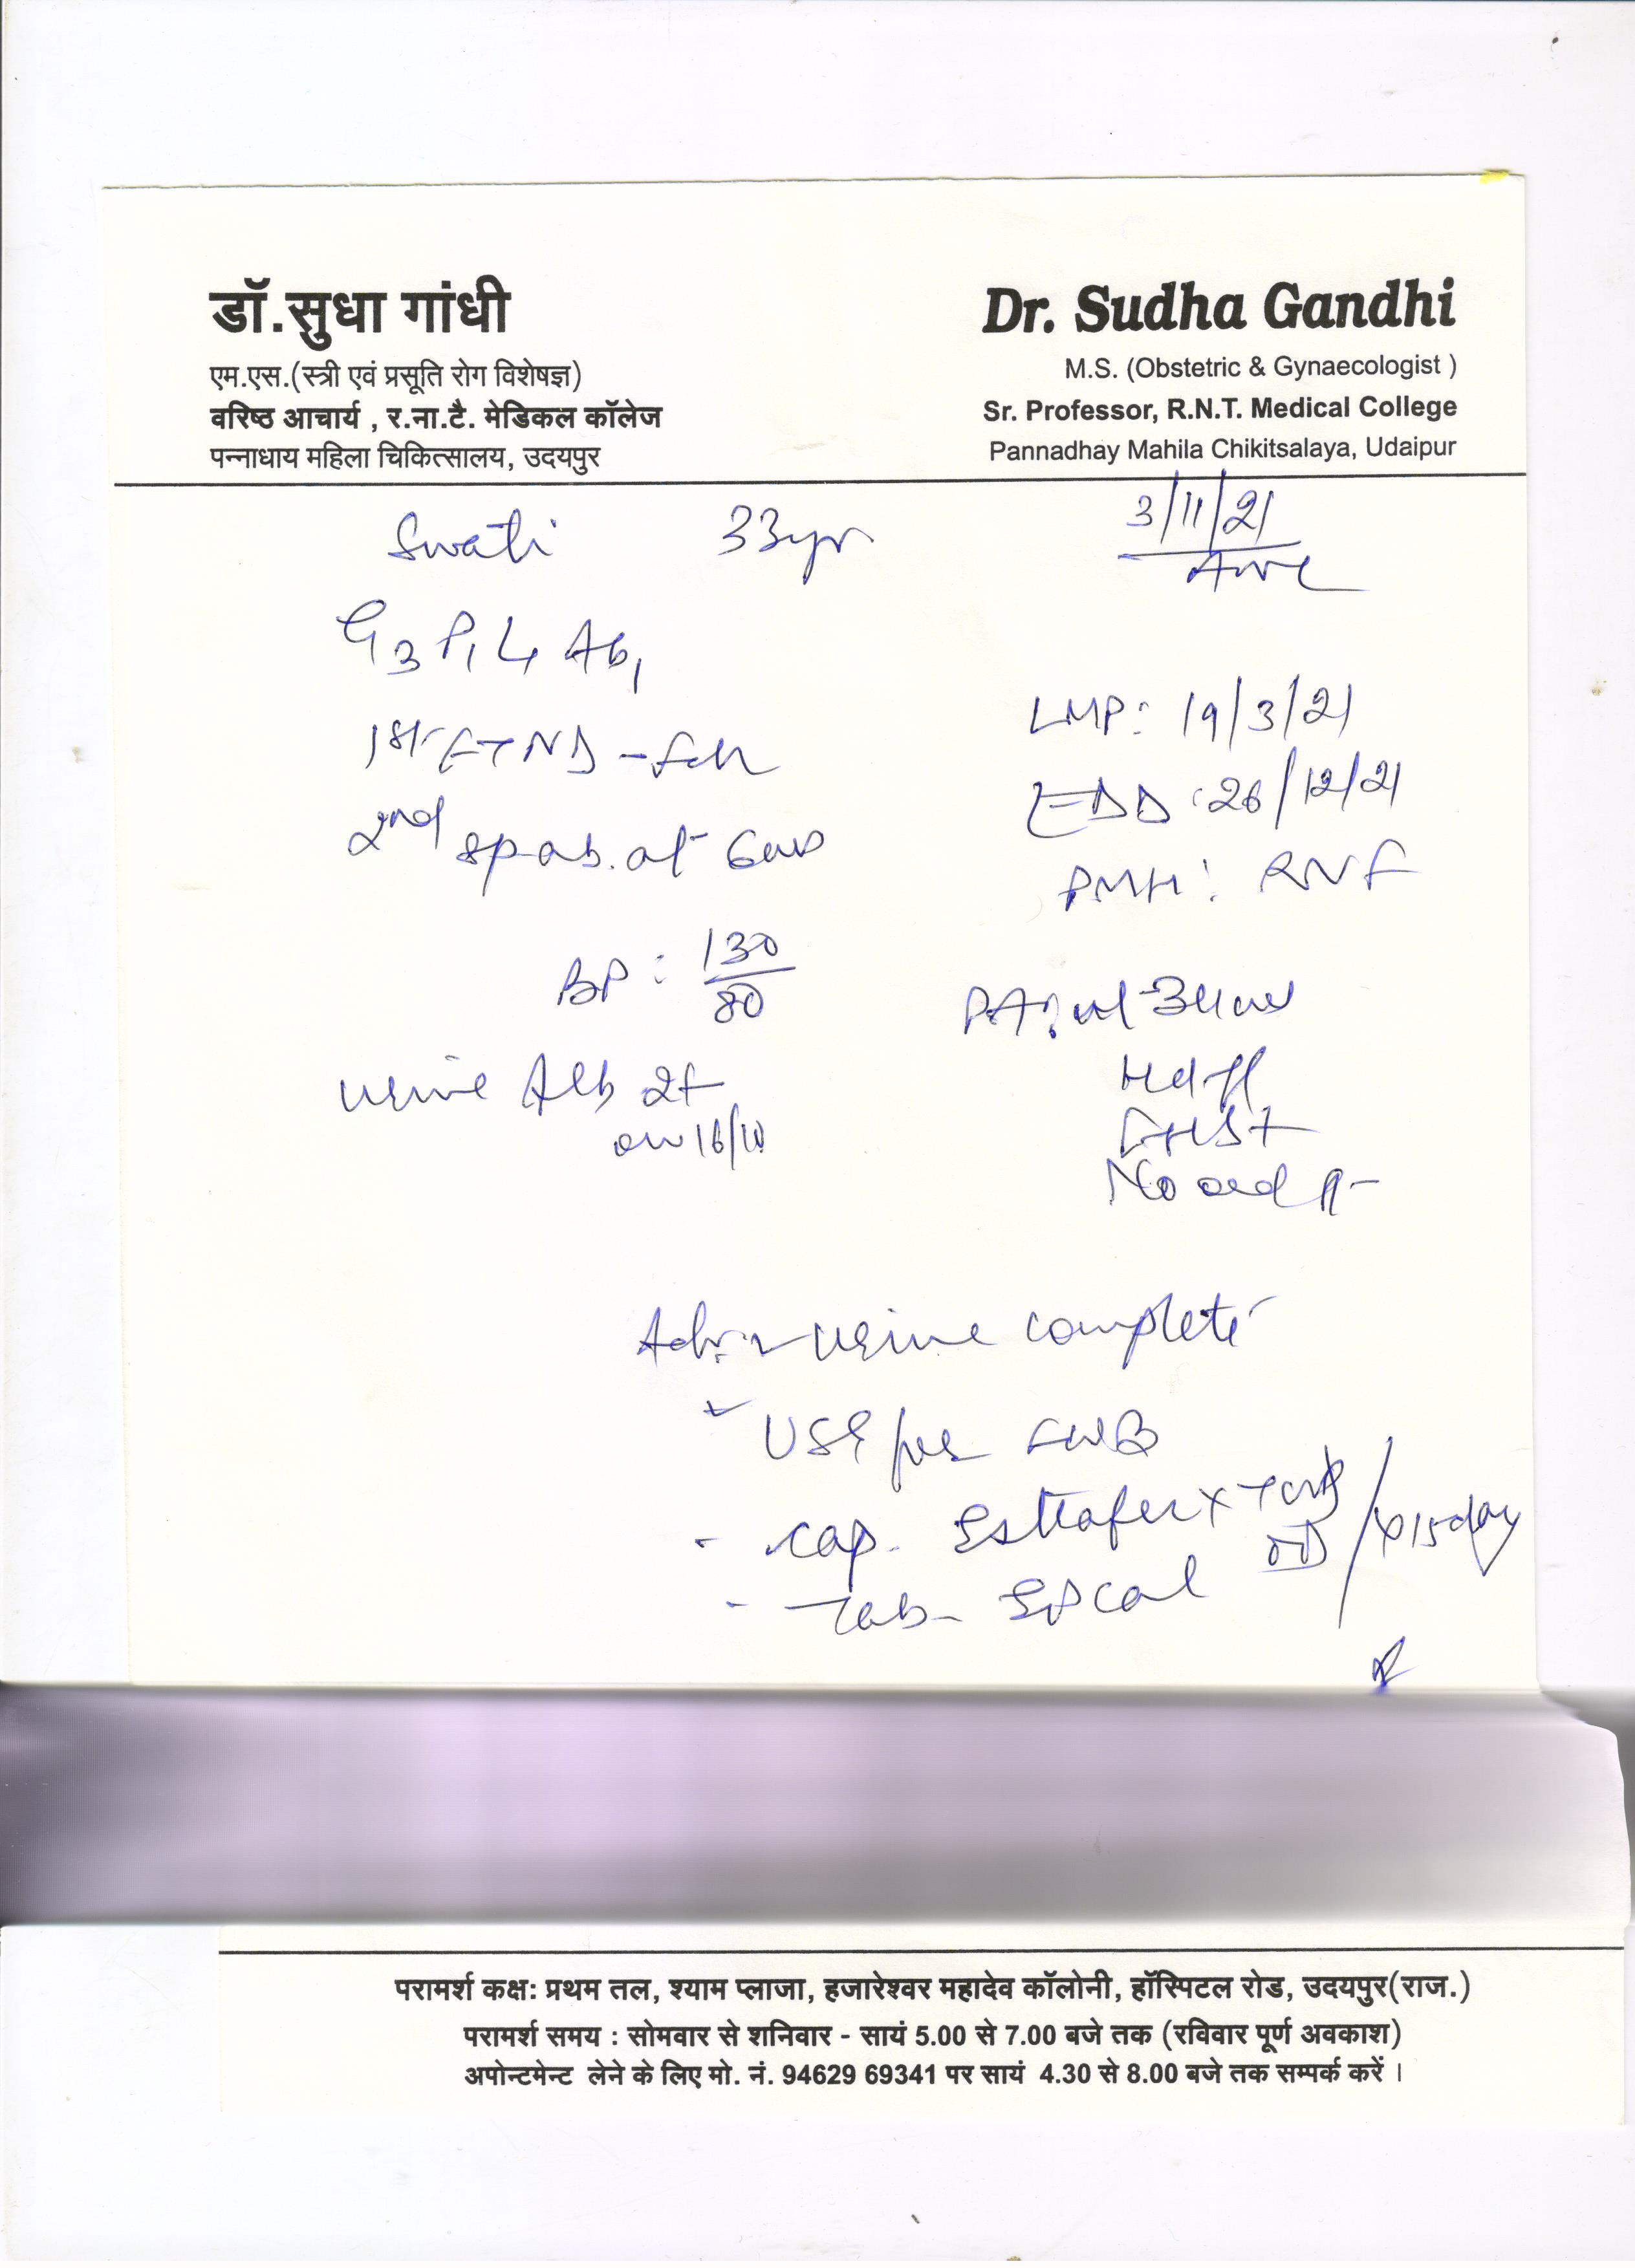 डॉ.सुधा गांधी
एम.एस.(स्त्री एवं प्रसूति रोग विशेषज्ञ)
वरिष्ठ आचार्य , र.ना.टै. मेडिकल कॉलेज
पन्नाधाय महिला चिकित्सालय, उदयपुर
Dr. Sudha Gandhi
M.S. (Obstetric & Gynaecologist )
Sr. Professor, R.N.T. Medical College
Pannadhay Mahila Chikitsalaya, Udaipur
Swati 33yr 3/11/21
G3 P1 L1 Ab1
LMP: 19/3/21
1st FTND - Fch
EDD : 26/12/21
2nd sp ab. at
PMH : RNF
BP : 130/80
PA: ut 34
Urine Alb 2+
on 16/10
FHS+
No
Adv. urine complete
USG for FWB
- cap. OD x 15 day
- Tab-
परामर्श कक्ष: प्रथम तल, श्याम प्लाजा, हजारेश्वर महादेव कॉलोनी, हॉस्पिटल रोड, उदयपुर(राज.)
परामर्श समय : सोमवार से शनिवार - सायं 5.00 से 7.00 बजे तक (रविवार पूर्ण अवकाश)
अपोन्टमेन्ट लेने के लिए मो. नं. 94629 69341 पर सायं 4.30 से 8.00 बजे तक सम्पर्क करें ।